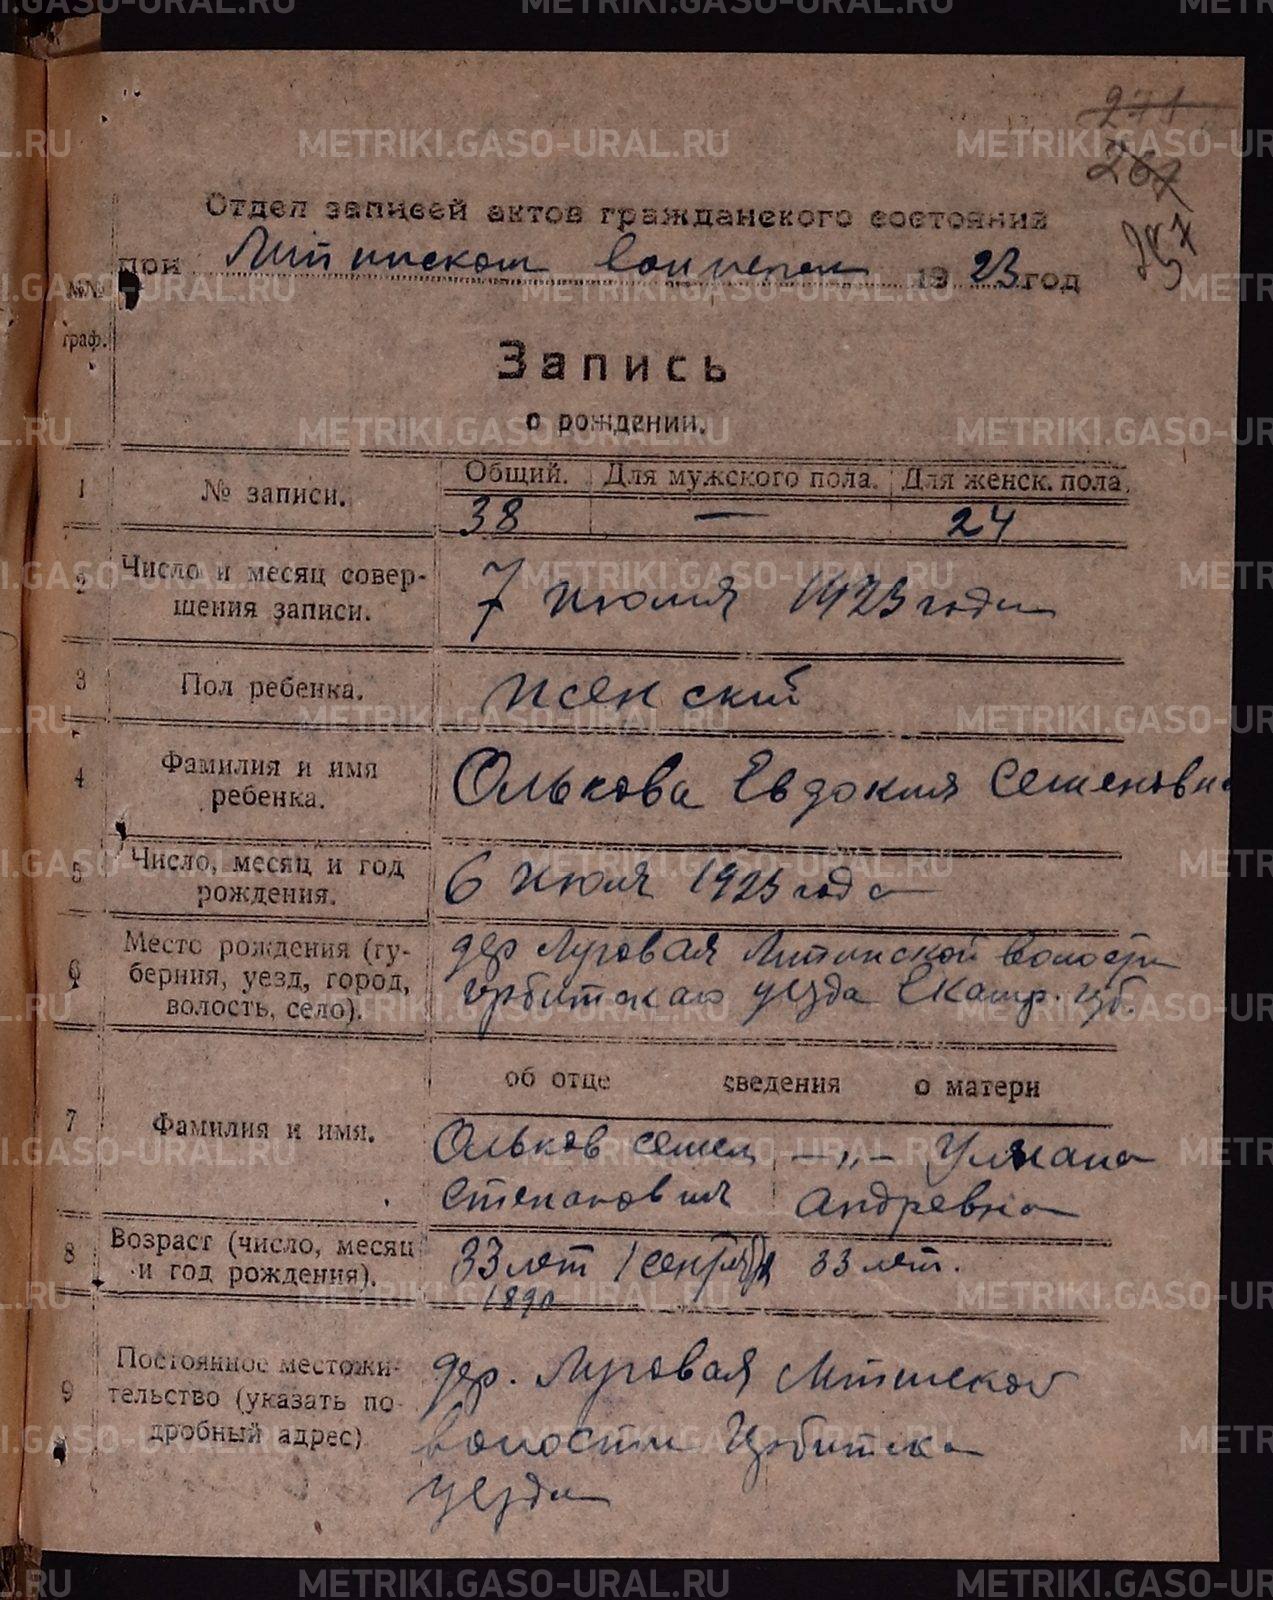 271
267
257
Отдел записей актов гражданского состояния
при Липинском волисполк 1923 год
№№
граф.
Запись
о рождении.
Общий. Для мужского пола. Для женск. пола.
1 № записи. 38 — 24
2 Число и месяц совер-
шения записи.
7 июля 1923 года
3 Пол ребенка. женский
4 Фамилия и имя
ребенка.
Олькова Евдокия Семеновна
5 Число, месяц и год
рождения.
6 июля 1923 года
6 Место рождения (гу-
берния, уезд, город,
волость, село).
дер Луговая Липинской волости
ирбитскаго уезда Екатр. губ.
об отце сведения о матери
7 Фамилия и имя.
Ольков Семен —„— Улияна
Степанович Андревна
8 Возраст (число, месяц
и год рождения).
33 лет 1 сентября 33 лет.
1890
9 Постоянное местожи-
тельство (указать по-
дробный адрес)
дер. Луговая
волости Ирбитска
уезда
METRIKI.GASO-URAL.RU